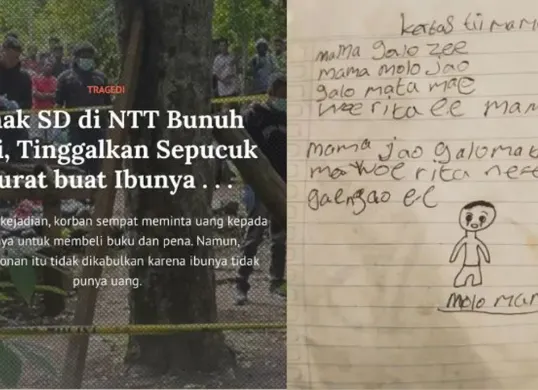 TRAGEDI
ak SD di NTT Bunuh
i, Tinggalkan Sepucuk
urat buat Ibunya . . .
kejadian, korban sempat meminta uang kepada
ya untuk membeli buku dan pena. Namun,
onan itu tidak dikabulkan karena ibunya tidak
punya uang.
kertas tii mama
mama galo zee
mama molo jao
galo mata mae
woe rita ee mam
mama jao galo mat
woe rita
ee
molo mam